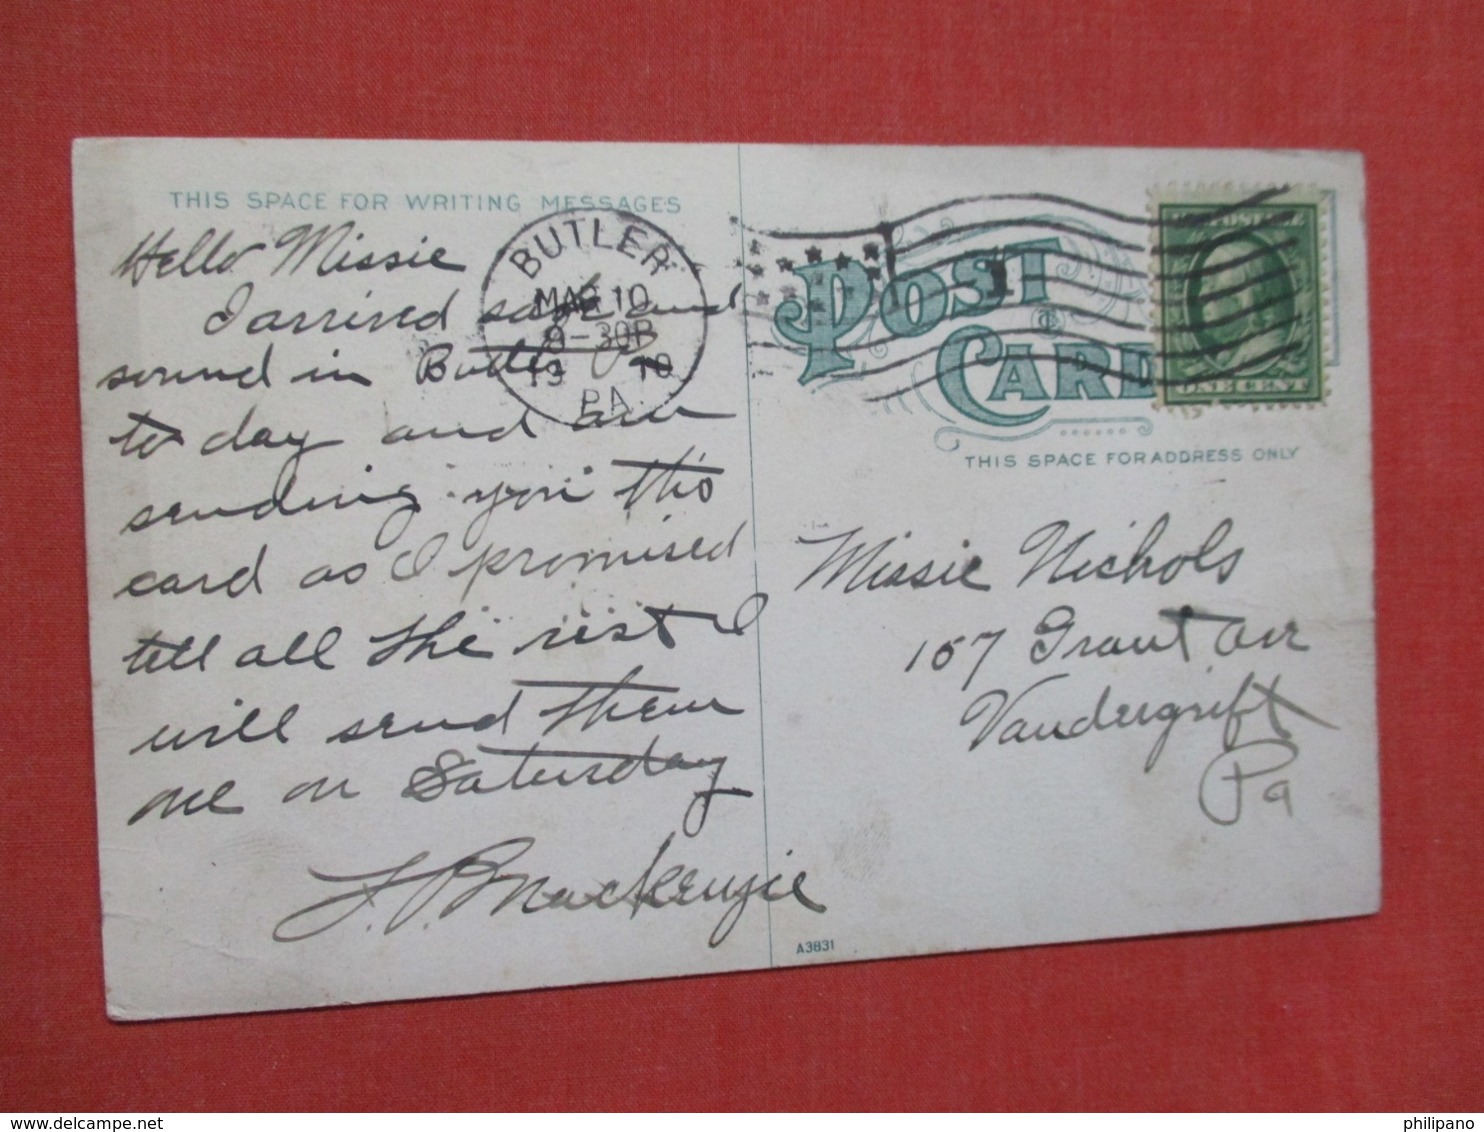 THIS SPACE FOR WRITING MESSAGES
Hello Missie
I arrived safe and
sound in Butler
to day and am
sending you this
card as I promised
tell all the rest I
will send them
one on Saturday
MacKenzie
BUTLER
MAR 10
9-30P
19 10
PA.
POST
CARD
U.S. POSTAGE
ONE CENT
THIS SPACE FOR ADDRESS ONLY
Missie Nichols
157 Grant Ave
Vandergrift
Pa
A3831
philipano